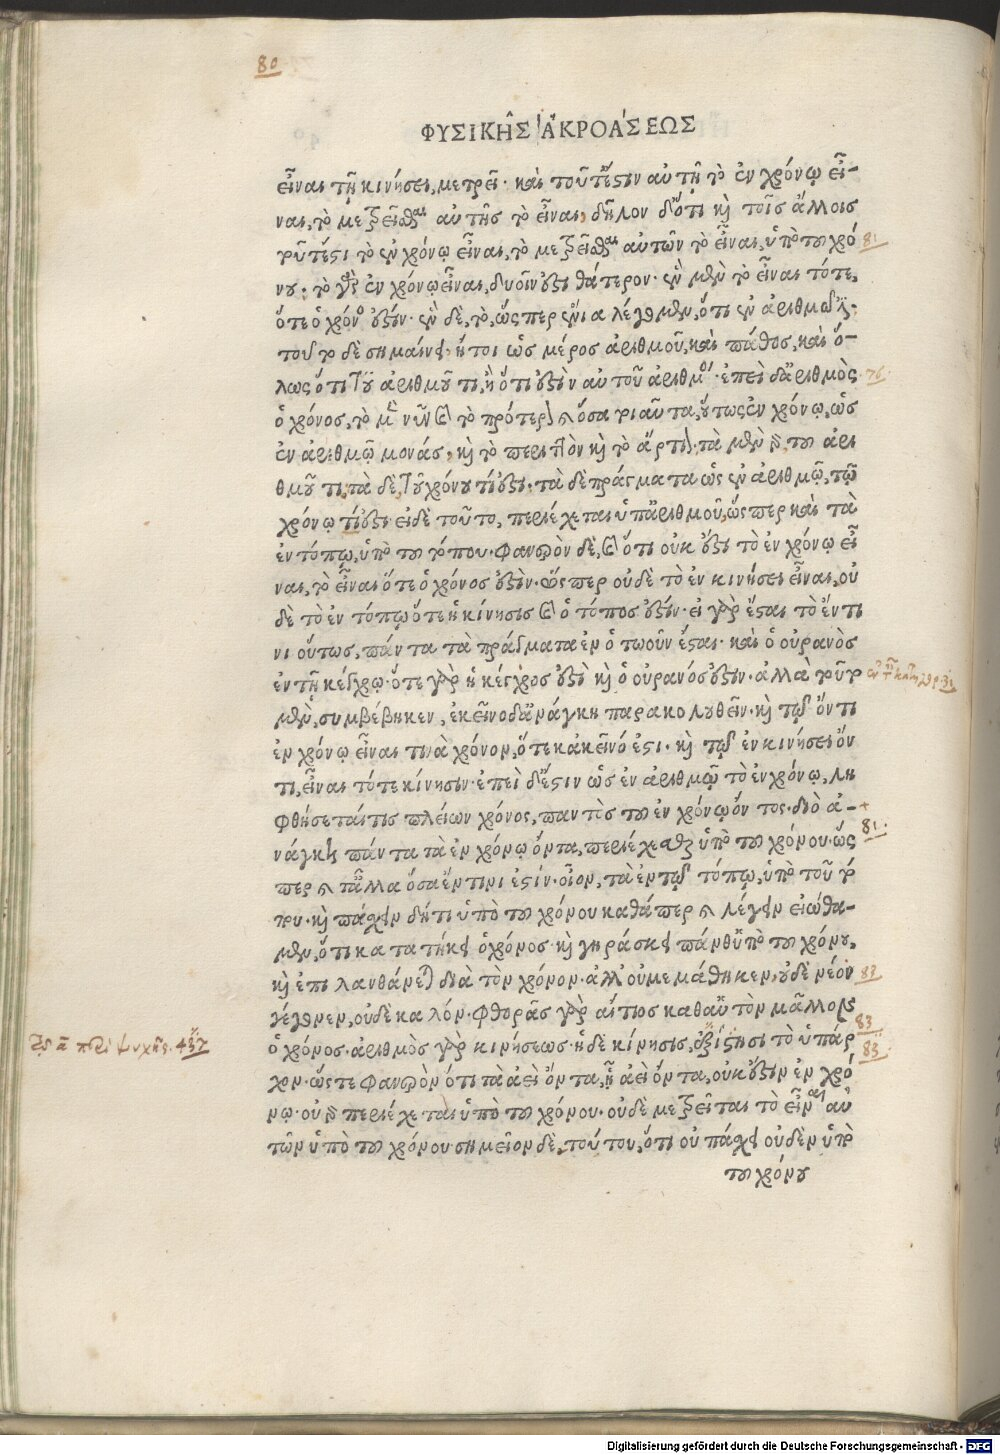 80
ΦΥΣΙΚΗ͂Σ ἈΚΡΟΆΣΕΩΣ
εἶναι τῇ κινήσει, μετρεῖ· καὶ τοῦτ' ἔστιν αὐτῇ τὸ ἐν χρόνῳ εἶ-
ναι, τὸ μετρεῖσθαι αὐτῆς τὸ εἶναι, δῆλον δ' ὅτι καὶ τοῖς ἄλλοις
τοῦτ' ἔστι τὸ ἐν χρόνῳ εἶναι, τὸ μετρεῖσθαι αὐτῶν τὸ εἶναι, ὑπὸ τοῦ χρό 81
νου· τὸ γὰρ ἐν χρόνῳ εἶναι, δυοῖν ἐστι θάτερον· ἓν μὲν τὸ εἶναι τότε,
ὅτε ὁ χρόνος ἐστίν· ἓν δὲ, τὸ, ὥσπερ ἔνια λέγομεν, ὅτι ἐν ἀριθμῷ ἐστι·
τοῦτο δὲ σημαίνει· ἤτοι ὡς μέρος ἀριθμοῦ, καὶ πάθος, καὶ ὅ-
λως ὅτι τοῦ ἀριθμοῦ τι, ἢ ὅτι ἐστὶν αὐτοῦ ἀριθμός· ἐπεὶ δ' ἀριθμὸς 76
ὁ χρόνος, τὸ μὲν νῦν καὶ τὸ πρότερον καὶ ὅσα τοιαῦτα, οὕτως ἐν χρόνῳ, ὡς
ἐν ἀριθμῷ μονάς, καὶ τὸ περιττὸν καὶ τὸ ἄρτιον· τὰ μὲν γὰρ τοῦ ἀρι
θμοῦ τι, τὰ δὲ, τοῦ χρόνου τί ἐστι· τὰ δὲ πράγματα ὡς ἐν ἀριθμῷ, τῷ
χρόνῳ τί ἐστι· εἰ δὲ τοῦτο, περιέχεται ὑπ' ἀριθμοῦ, ὥσπερ καὶ τὰ
ἐν τόπῳ, ὑπὸ τοῦ τόπου· φανερὸν δὲ, καὶ ὅτι οὐκ ἔστι τὸ ἐν χρόνῳ εἶ
ναι, τὸ εἶναι ὅτε ὁ χρόνος ἐστίν· ὥσπερ οὐδὲ τὸ ἐν κινήσει εἶναι, οὐ
δὲ τὸ ἐν τόπῳ ὅτε ἡ κίνησις καὶ ὁ τόπος ἐστίν· εἰ γὰρ ἔσται τὸ ἔν τι
νι οὕτως, πάντα τὰ πράγματα ἐν ὁτῳοῦν ἔσται· καὶ ὁ οὐρανὸς
ἐν τῇ κέγχρῳ· ὅτε γὰρ ἡ κέγχρος ἐστὶ καὶ ὁ οὐρανός ἐστιν· ἀλλὰ τοῦτο
μὲν, συμβέβηκεν, ἐκεῖνο δ' ἀνάγκη παρακολουθεῖν· καὶ τῷ ὄντι
ἐν χρόνῳ εἶναι τινὰ χρόνον, ὅτε κἀκεῖνό ἐστι· καὶ τῷ ἐν κινήσει ὄν
τι, εἶναι τότε κίνησιν· ἐπεὶ δ' ἔστιν ὡς ἐν ἀριθμῷ τὸ ἐν χρόνῳ, λη
φθήσεταί τις πλείων χρόνος, παντὸς τοῦ ἐν χρόνῳ ὄντος· διὸ ἀ- +
νάγκη πάντα τὰ ἐν χρόνῳ ὄντα, περιέχεσθαι ὑπὸ τοῦ χρόνου· ὥσ 81·
περ καὶ τἆλλα ὅσα ἔν τινι ἐστίν· οἷον, τὰ ἐν τῷ τόπῳ, ὑπὸ τοῦ τό
που· καὶ πάσχειν δή τι ὑπὸ τοῦ χρόνου καθάπερ καὶ λέγειν εἰώθα-
μεν, ὅτι κατατήκει ὁ χρόνος· καὶ γηράσκει πάνθ' ὑπὸ τοῦ χρόνου,
καὶ ἐπιλανθάνεται διὰ τὸν χρόνον· ἀλλ' οὐ μεμάθηκεν, οὐδὲ νέον 83
γέγονεν, οὐδὲ καλόν· φθορᾶς γὰρ αἴτιος καθ' αὑτὸν μᾶλλον 83
ὁ χρόνος· ἀριθμὸς γὰρ κινήσεως· ἡ δὲ κίνησις, ἐξίστησι τὸ ὑπάρ 83
χον· ὥστε φανερὸν ὅτι τὰ ἀεὶ ὄντα, ᾗ ἀεὶ ὄντα, οὐκ ἔστιν ἐν χρό
νῳ· οὐ γὰρ περιέχεται ὑπὸ τοῦ χρόνου· οὐδὲ μετρεῖται τὸ εἶναι αὐ
τῶν ὑπὸ τοῦ χρόνου· σημεῖον δὲ, τούτου, ὅτι οὐ πάσχει οὐδὲν ὑπὸ
τοῦ χρόνου
Digitalisierung gefördert durch die Deutsche Forschungsgemeinschaft - DFG